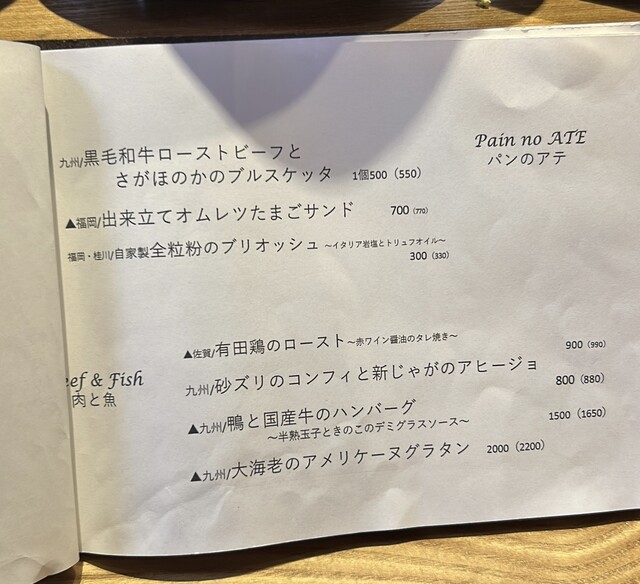 Pain no ATE
パンのアテ
九州/黒毛和牛ローストビーフと
さがほのかのブルスケッタ 1個500（550）
▲福岡/出来立てオムレツたまごサンド 700（770）
福岡・桂川/自家製全粒粉のブリオッシュ～イタリア岩塩とトリュフオイル～
300（330）
eef & Fish
肉と魚
▲佐賀/有田鶏のロースト～赤ワイン醤油のタレ焼き～ 900（990）
九州/砂ズリのコンフィと新じゃがのアヒージョ 800（880）
▲九州/鴨と国産牛のハンバーグ 1500（1650）
～半熟玉子ときのこのデミグラスソース～
▲九州/大海老のアメリケーヌグラタン 2000（2200）